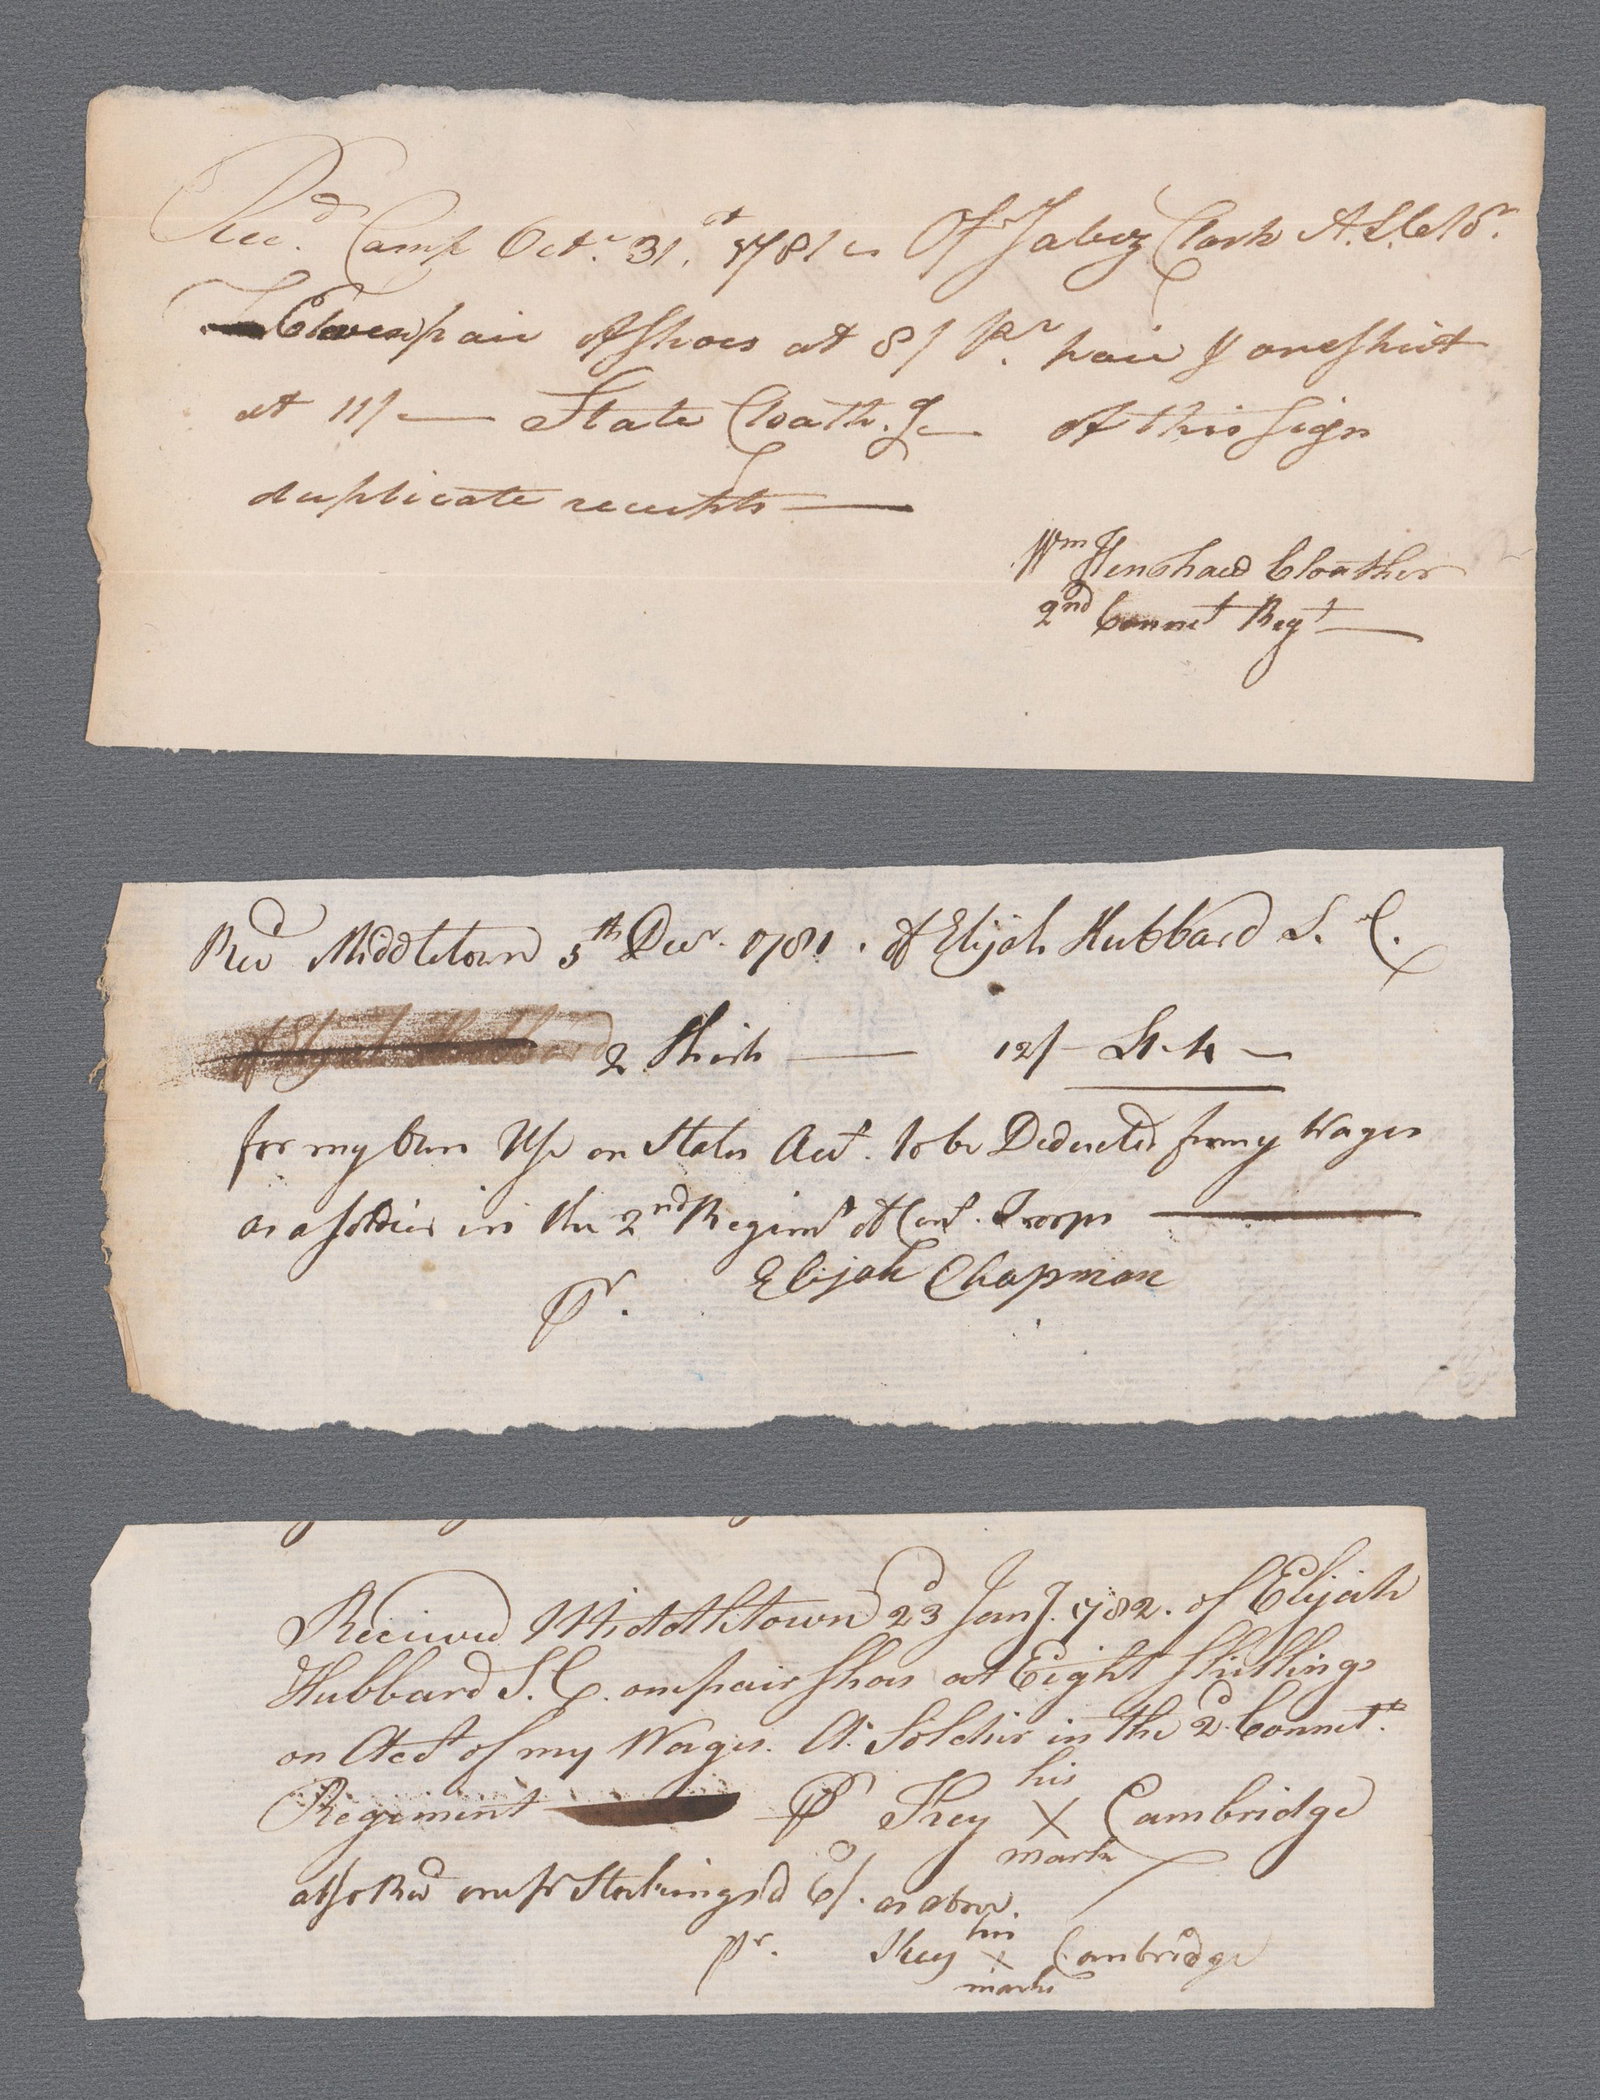 Recd. Camp Octr. 31st. 1781 Of Jabez Clark A. S. Clor.
Eleven pair of shoes at 8/ pr. pair & one shirt
at 11/ — State Cloathg — of this sign
duplicate receipts —
Wm Henshaw Cloather
2nd Connet Regt —
Recd Middletown 5th Decr. 1781. of Elijah Hubbard S. C.
of Elijah Hubbard 2 Shirts — 12/ —
for my own Use on States Acct. to be Deducted from my Wages
as a soldier in the 2nd Regimt of Cont. Troops —
Pr. Elijah Chapman
Received Middletown 23d Jany. 1782. of Elijah
Hubbard S. C. one pair Shoes at Eight Shillings
on Acct of my Wages. As. Soldier in the 2d. Connet.
Regiment — Pr his
Cambridge
X
mark
also Recd one pr Stockings @ 6/. as above.
his
Pr. X Cambridge
mark